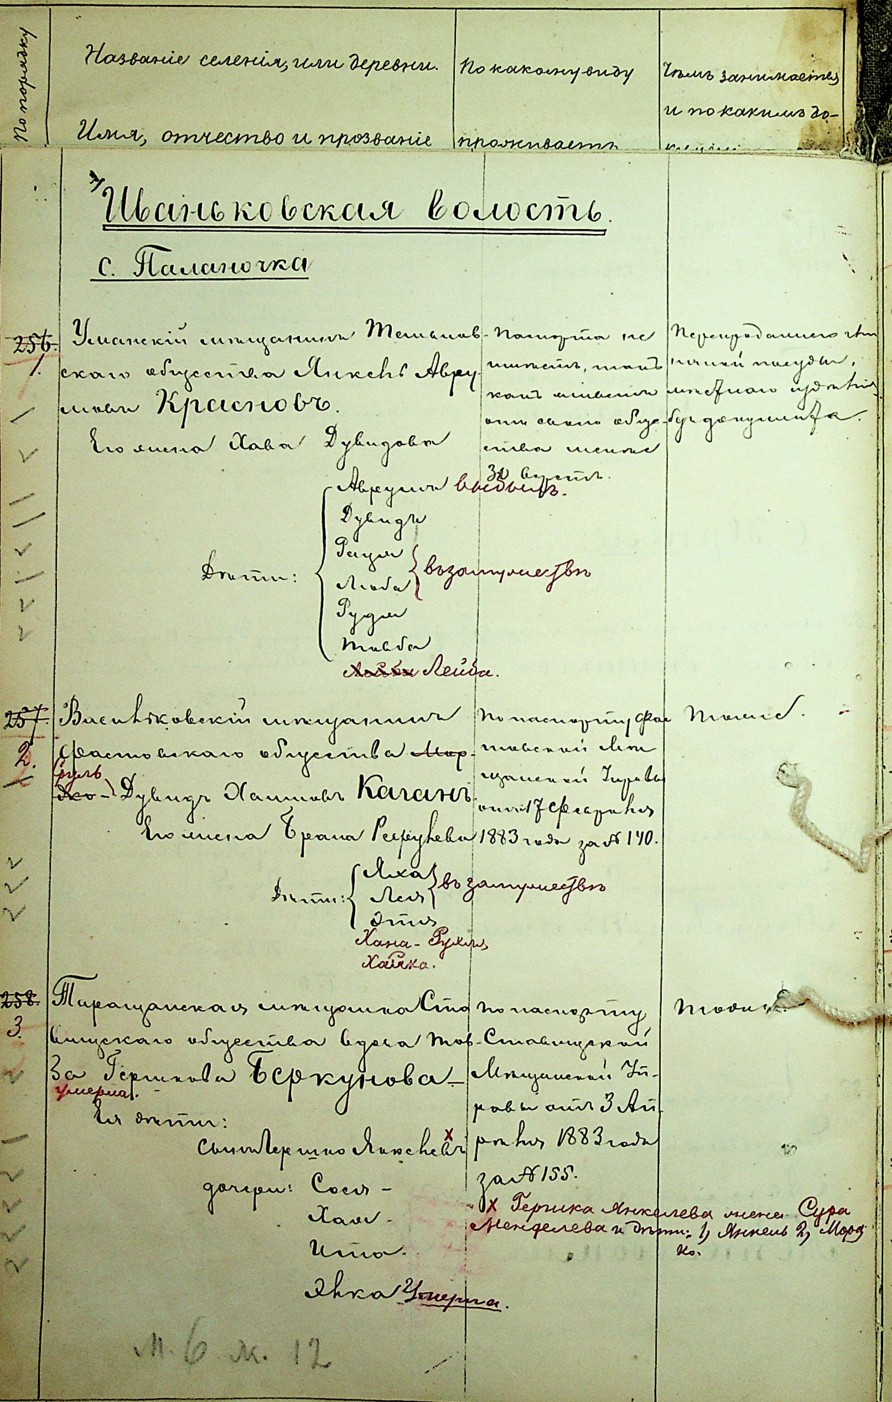 По порядку
Названіе селенія, или деревни.
Имя, отчество и прозваніе
По какому виду
проживаетъ
Чѣмъ занимается
и по какимъ до-
Иваньковская волость.
с. Паланочка
256.
1.
Уманскій мѣщанинъ
скаго общества Янкель Авру
мовъ Красновъ.
Его жена Хава Дувидова
Дѣти:
Аврумъ выбылъ.
Дувидъ
Рухля
Люба
въ замужествѣ
Рудля
Товба
Лейба.
Паспорта не
имѣетъ, такъ
какъ
отъ своего обще-
ства менѣе
30 верстъ.
посуды,
257.
2.
Васильковскій мѣщанинъ
Фастовскаго общества Мор-
Сруль
дко - Дувидъ Хаимовъ Каганъ
Его жена
Дѣти:
Лея
Этля
въ замужествѣ
Хана-Рухля
Хайка.
По паспорту Фас
товской Мѣ
щанской Управы
отъ 17 Февраля
1883 года за № 140.
Тоже.
258.
3.
Таращанская мѣщанка Ста
вищскаго общества вдова Тов-
ба Гершкова Беркунова -
умерла.
Ея дѣти:
сынъ Гершко Янкелевъ х
дочери: Сося -
Хая -
Ита.
Янка Умерла.
По паспорту
Ставищской
Мѣщанской Уп-
равы отъ 3 Ап-
рѣля 1883 года
за № 155.
Тоже.
х Гершка Янкелева жена Сура
Менделева и дѣти: 1) Янкель 2) Морд
ко.
м. 6 ж. 12